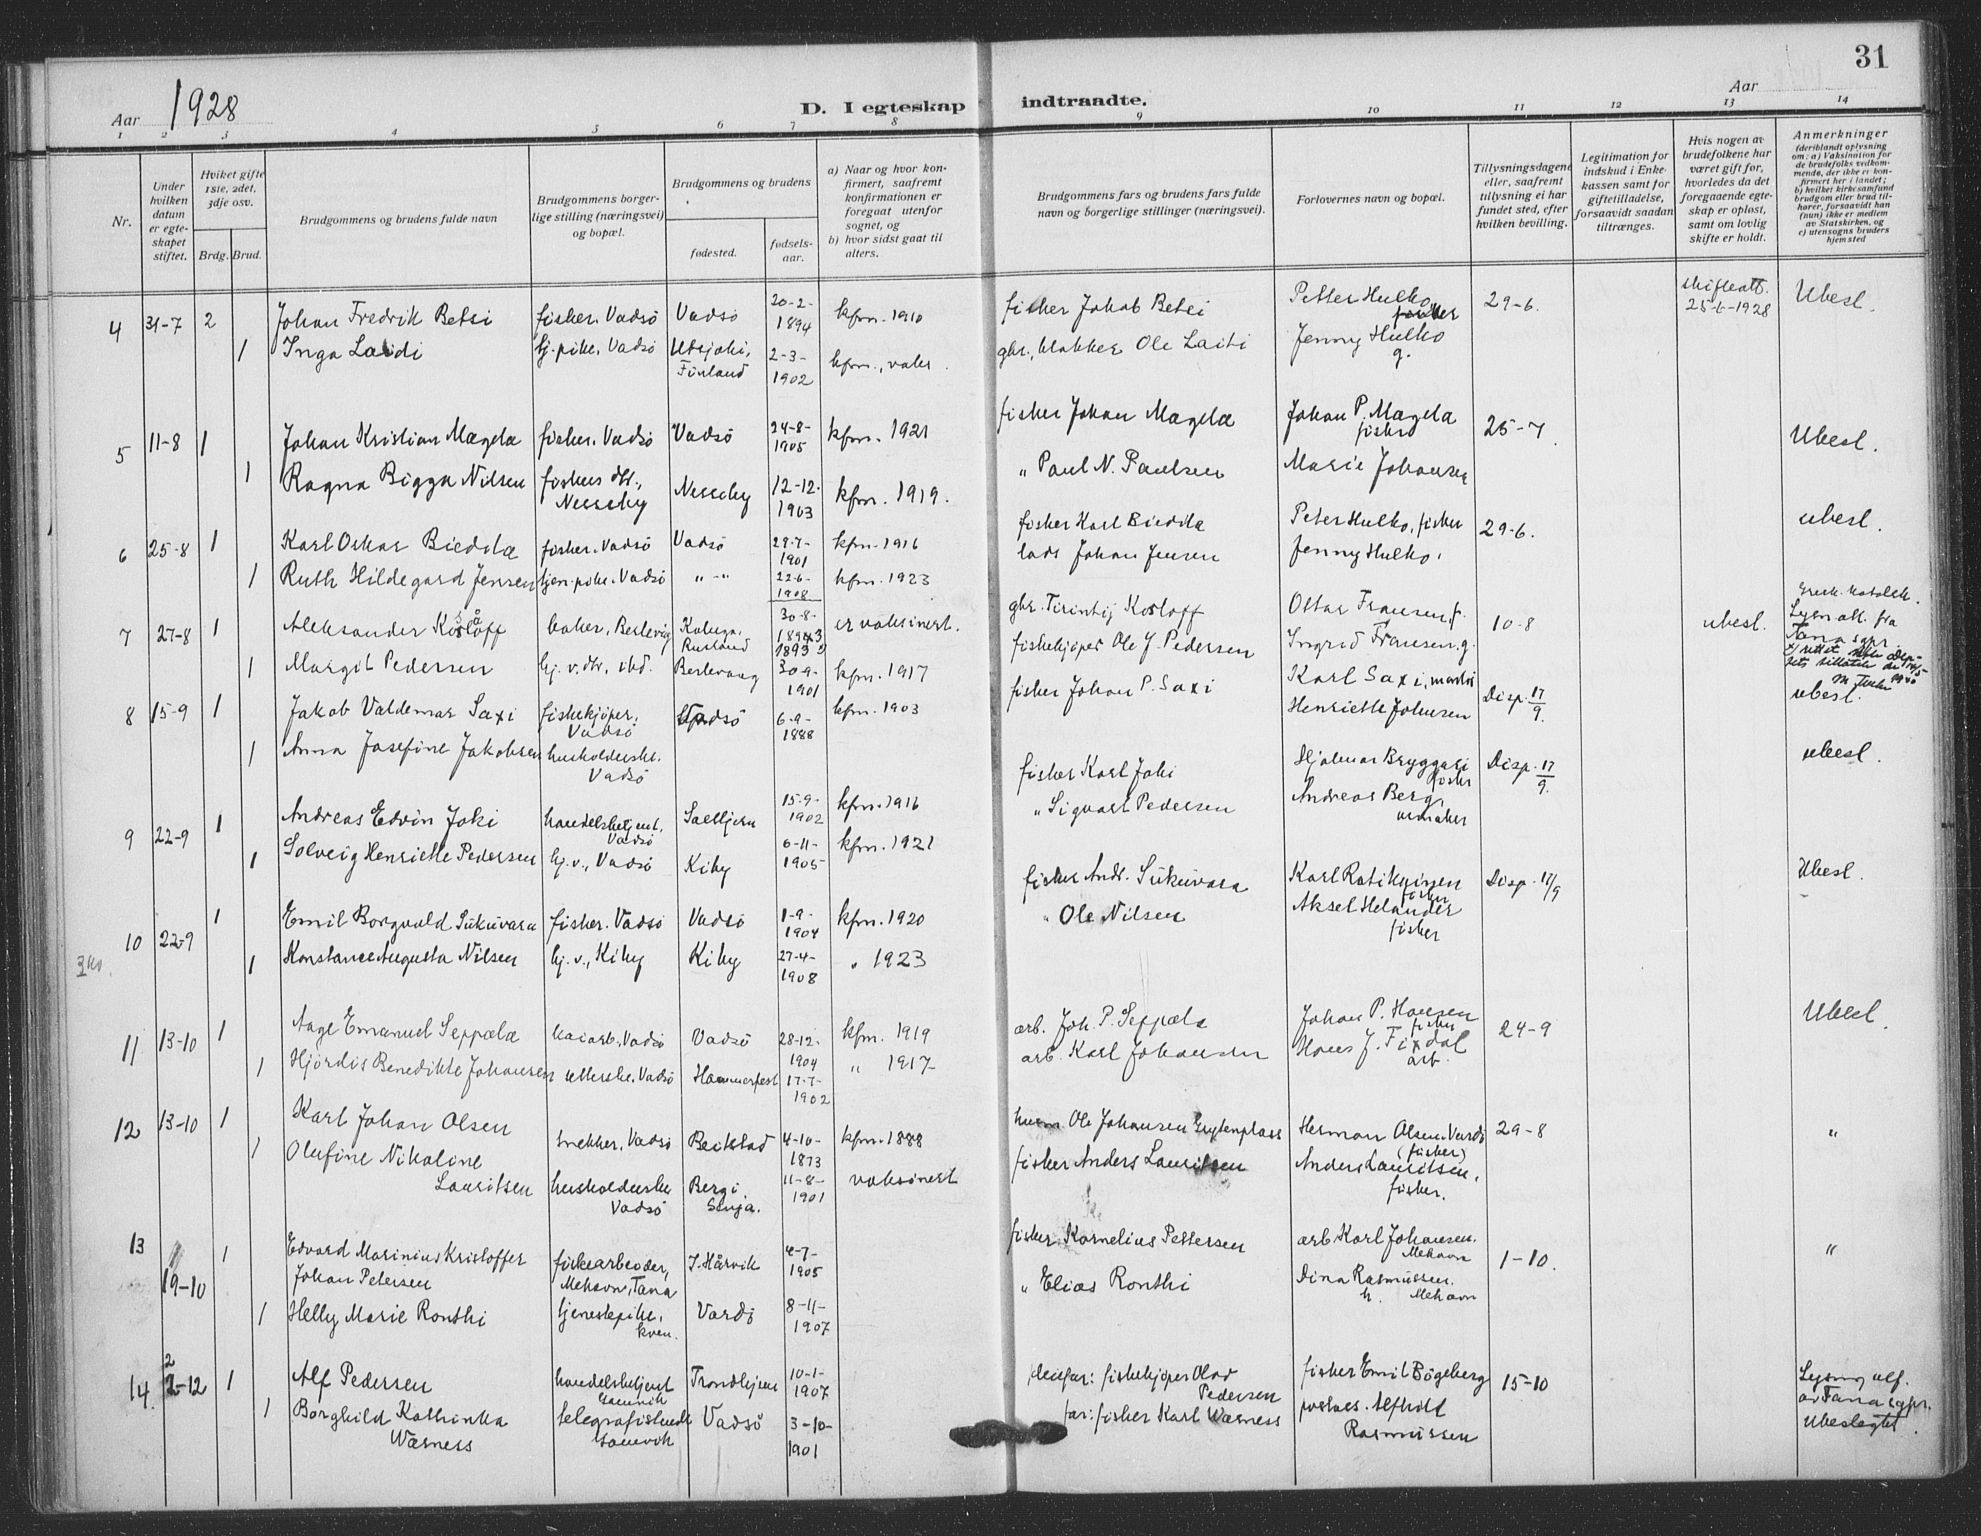 31
Aar 1928
D. I egteskap indtraadte.
Aar
1 2 3 4 5 6 7 8 9 10 11 12 13 14
Nr.
Under hvilken datum er egteskapet stiftet.
Hvilket gifte 1ste, 2det, 3dje osv.
Brdg. Brud.
Brudgommens og brudens fulde navn
Brudgommens borgerlige stilling (næringsvei) og bopæl.
Brudgommens og brudens
fødested.
fødselsaar.
a) Naar og hvor konfirmert, saafremt konfirmationen er foregaat utenfor sognet, og
b) hvor sidst gaat til alters.
Brudgommens fars og brudens fars fulde navn og borgerlige stillinger (næringsvei).
Forlovernes navn og bopæl.
Tillysningsdagene eller, saafremt tillysning ei har fundet sted, efter hvilken bevilling.
Legitimation for indskud i Enkekassen samt for giftetilladelse, forsaavidt saadan tiltrænges.
Hvis nogen av brudefolkene har været gift før, hvorledes da det foregaaende egteskap er opløst, samt om lovlig skifte er holdt.
Anmerkninger (deriblandt oplysning om: a) Vaksination for de brudefolks vedkommende, der ikke er konfirmert her i landet; b) hvilket kirkesamfund brudgom eller brud tilhører, forsaavidt han (hun) ikke er medlem av Statskirken, og c) utensogns bruders hjemsted
4 31-7 2 Johan Fredrik Betsi fisker, Vadsö Vadsö 20-2-1894 kfm. 1910 fisker Jakob Betsi Petter Hulko fisker 29-6. skifteatt. 25-6-1928 Ubesl.
1 Inga Laidi tj.pike, Vadsö Utsjoki, Finland 2-3-1902 kfm., vaks. gbr., klokker Ole Laiti Jenny Hulko g.
5 11-8 1 Johan Kristian Magela fisker, Vadsö Vadsö 24-8-1905 kfm. 1921 fisker Johan Magela Johan P. Magela fisker 25-7. Ubesl.
1 Ragna Bigga Nilsen fiskers dtr., Nesseby Nesseby 12-12-1903 kfm. 1919. " Paul N. Paulsen Marie Johansen
6 25-8 1 Karl Oskar Biedila fisker, Vadsö Vadsö 29-7-1901 kfm. 1916 fisker Karl Biedila Peter Hulko, fisker 29-6. ubesl.
1 Ruth Hildegard Jensen tjen.pike, Vadsö "-" 22-6-1908 kfm. 1923 lods Johan Jensen Jenny Hulko.
7 27-8 1 Aleksander Kosloff baker, Berlevåg Kaluga, Russland 30-8-1893 er vaksinert. gbr. Tirintij Kosloff Ottar Fransen, f. 10-8 ubesl. Gresk-katolsk. Lysn.att. fra Tana sgpr.
1 Margit Pedersen hj. v. dtr., ibd. Berlevaag 30-9-1901 kfm. 1917 fiskekjöper Ole J. Pedersen Ingrid Fransen, g.
8 15-9 1 Jakob Valdemar Saxi fiskekjöper, Vadsö Vadsö 6-9-1888 kfm. 1903 fisker Johan P. Saxi Karl Saxi, Henriette Johnsen Disp. 17/9. ubesl.
1 Anna Josefine Jakobsen husholderske, Vadsö
9 22-9 1 Andreas Edvin Joki handelsbetjent, Vadsö 15-9-1902 kfm. 1916 fisker Karl Joki Hjalmar Bryggari fisker Disp. 17/9. ubesl.
1 Solveig Henriette Pedersen hj.v., Vadsö Kiby 6-11-1905 kfm. 1921 " Sigvart Pedersen Andreas Berg, urmaker
10 22-9 1 Emil Borgvald Sukuvara fisker, Vadsö Vadsö 1-9-1904 kfm. 1920 fisker Andr. Sukuvara Karl Ratikainen fisker Disp. 17/9 Ubesl.
1 Konstance Augusta Nilsen hj. v., Kiby Kiby 27-4-1908 " 1923 " Ole Nilsen Aksel Helander fisker
11 13-10 1 Aage Emanuel Seppala kaiarb., Vadsö Vadsö 28-12-1904 kfm. 1919 arb. Joh. P. Seppala Johan P. Hansen fisker 24-9 Ubesl.
1 Hjördis Benedikte Johansen Vadsö Hammerfest 17-7-1902 " 1917- arb. Karl Johansen Hans J. Fixdal arb.
12 13-10 1 Karl Johan Olsen snekker, Vadsö Beitstad 4-10-1873 kfm. 1888 husm. Ole Johansen Herman Olsen, Vardö (fisker) 29-8 "
1 Olufine Nikoline Lauritsen husholderske Vadsö Bergi, Senja. 11-8-1901 vaksinert fisker Anders Lauritsen Anders Lauritsen, fisker.
13 19-10 1 Edvard Marinius Kristoffer Johan Petersen fiskearbeider, Mehavn, Tana I. Hårvik 4-7-1905 fisker Kornelius Pettersen arb. Karl Johansen, Mehavn 1-10. "
1 Helly Marie Ronthi tjenestepike, kven. Vardö 8-11-1907 " Elias Ronthi Dina Rasmussen h. Mehavn
14 2-12 1 Alf Pedersen handelsbetjent Gamvik Trondhjem 10-1-1907 fiskekjöper Olav Pedersen fisker Emil Bögeberg 15-10 Lysning att. av Tana sgpr. Ubeslegtet
1 Borghild Kathinka Wærness telegrafistinde Gamvik Vadsö 3-10-1901 far: fisker Karl Wærness Alfhild Rasmussen